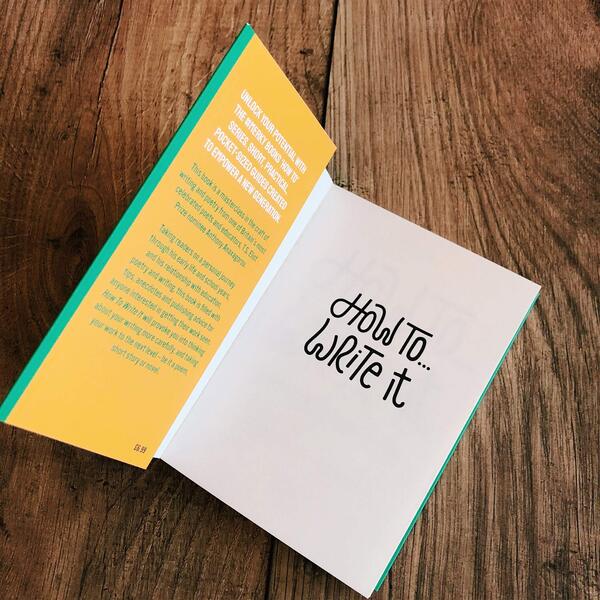 UNLOCK YOUR POTENTIAL WITH
THE #MERKY BOOKS 'HOW TO'
SERIES. SHORT, PRACTICAL
POCKET-SIZED GUIDES CREATED
TO EMPOWER A NEW GENERATION.
This book is a masterclass in the craft of
writing and poetry from one of Britain's most
celebrated poets and educators, T.S. Eliot
Prize nominee Anthony Anaxagorou.
Taking readers on a personal journey
through his early life and school years,
and his relationship with education,
poetry and writing, this book is filled with
tips, anecdotes and publishing advice for
anyone interested in getting their work seen.
How To Write It will provoke you into thinking
about your writing more carefully, and taking
your work to the next level – be it a poem,
short story or novel.
£6.99
HOW TO...
WRiTe iT